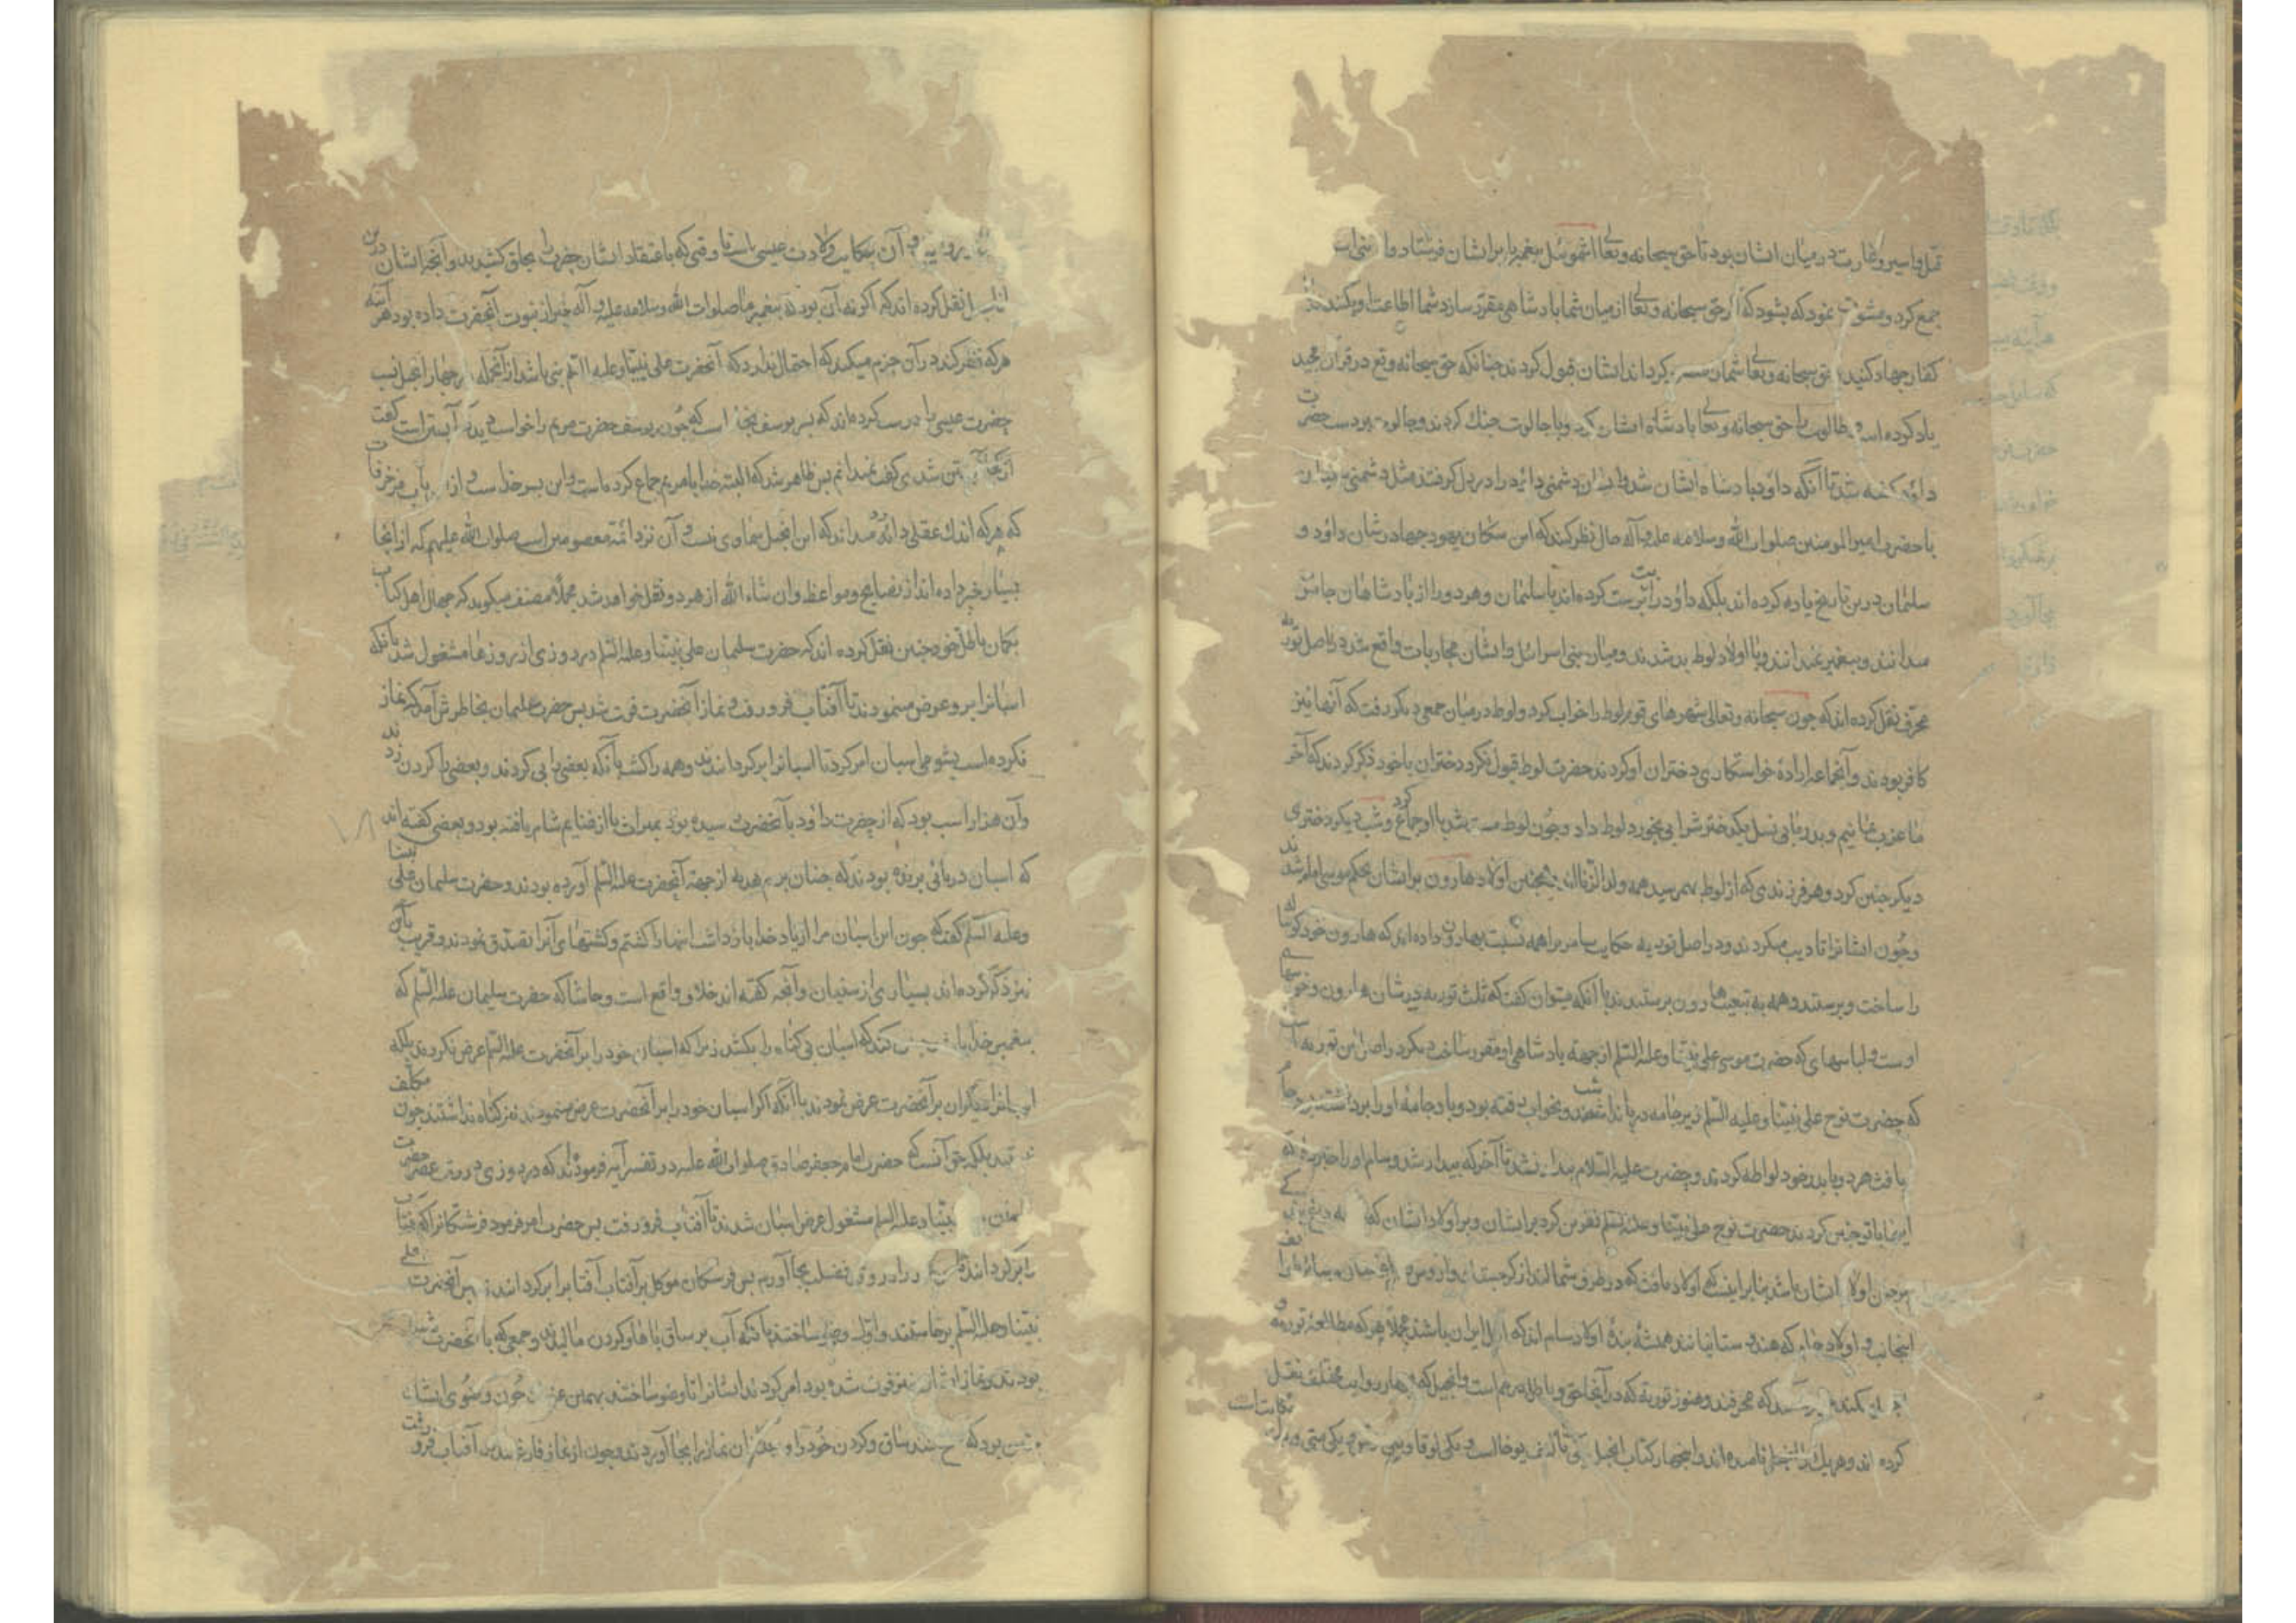 قتل و اسیر و غارت در میان ایشان بود تا حق سبحانه و تعالی اشموئیل پیغمبر را بر ایشان فرستاد و او
جمع کرد و مشورت نمود که بشود که اگر حق سبحانه و تعالی از میان شما پادشاهی مقرر سازد شما اطاعت او بکنید
کفار جهاد کنید حق سبحانه و تعالی شما را کرداند ایشان قبول کردند چنانکه حق سبحانه و تع در قرآن مجید
یاد کرده است و طالوت را حق سبحانه و تعالی پادشاه ایشان کرد و با جالوت جنك کردند و جالوت بر دست حضرت
داود کشته شد تا آنکه داود پادشاه ایشان شد و ایشان دشمنی داود را در دل کرفتند مثل دشمنی
با حضرت امیر المومنین صلوات الله و سلامه علیه و آله حال نظر کنید که این سکان یهود چها در شان داود و
سلیمان درین تاریخ یاد کرده اند بلکه داود را بت پرست کرده اند با سلیمان و هر دو را از پادشاهان جابر
میدانند و پیغمبر نمیدانند و با اولاد لوط بد شدند و میان بنی اسرائیل و ایشان محاربات واقع شد در اصل تورية
محرف نقل کرده اند که چون سبحانه و تعالی شهرهای قوم لوط را خراب کرد و لوط در میان جمعی دیکر رفت که آنها نیز
کافر بودند و آنجماعه اراده خواستکاری دختران او کردند حضرت لوط قبول نکرد دختران با خود ذکر کردند که آخر
ما عزب نمانیم و پدر ما بی نسل یکدختر شرابی بخورد لوط داد و چون لوط مست شد با او جماع کرد و شب دیکر دختری
دیکر چنین کرد و هر فرزندی که از لوط بهمرسید همه ولد الزنااند همچنین اولاد هارون بر ایشان بحکم موسی امام شدند
و چون ایشانرا تادیب میکردند و در اصل تورية حکایت سامریرا همه نسبت بهارون داده اند که هارون خود کوساله
را ساخت و پرستید و همه به تبعیت هارون پرستیدند با آنکه میتوان کفت که ثلث تورية در شان هارون و
اوست و لباسهای که حضرت موسی علی نبینا و علیه السلم از جهة پادشاهی او مقرر ساخت دیکر در اصل این تورية
که حضرت نوح علی نبینا و علیه السلم زیر جامه در پا نداشت و شب بخواب رفته بود و باد جامهٔ او را برداشت
یافث هر دو با پدر خود لواطه کردند و حضرت علیه السلام بیدار نشد تا آخر که بیدار شد و سام او را خبر
اینها با تو چنین کردند حضرت نوح علی نبینا و علیه السلم نفرین کرد بر ایشان و بر اولاد ایشان که
اولاد ایشان باشد بنابر اینست که اولاد یافث که در طرف شمالند از
اینجانب و اولاد حام که هندوستانیانند همیشه بندهٔ اولاد سام اند که اهل ایران باشند مجملا هر که مطالعهٔ تورية و
که محرفند و هنوز تورية که در آنجا حق و باطل درهم است و انجیل که چهار روایت مختلف نقل
کرده اند و هر یك را انجیل نامیده اند و اینچهار کتاب انجیل یکی تالیف یوحنا است و یکی لوقا و یکی متی و
آن حکایت ولادت عیسی است تا وقتی که باعتقاد ایشان حضرت را بحلق کشیدند و آنچه ایشان درین
نقل کرده اند که اکر نه آن بود که پیغمبر ما صلوات الله و سلامه علیه و آله خبر از نبوت آنحضرت داده بود هر آینه
هر که تفکر کند در آن جزم میکند که احتمال ندارد که آنحضرت علی نبینا و علیه السلم نبی باشد از آنجمله در چهار انجیل نسب
حضرت عیسی را درست کرده اند که پسر یوسف نجار است که چون یوسف حضرت مریم را خواست دید که آبستن است کفت
از کجا آبستن شدی کفت نمیدانم پس ظاهر شد که البته خدا با مریم جماع کرده است و این پسر خداست و ازین باب مزخرفات
که هر که اندك عقلی دارد میداند که این انجیل سماوی نیست و آن نزد ائمة معصومین است صلوات الله علیهم که از آنجا
بسیار خبر داده اند از نصایح و مواعظ و ان شاء الله از هر دو نقل خواهد شد مجملا مصنف میکوید که جهال اهل کتاب
بکمان باطل خود چنین نقل کرده اند که حضرت سلیمان علی نبینا و علیه السلم در روزی از روزها مشغول شد بآنکه
اسبانرا بر و عرض مینمودند تا آفتاب فرو رفت و نماز آنحضرت فوت شد پس حضرت سلیمان بخاطرش آمد که نماز
نکرده است بشومی اسبان امر کرد تا اسبانرا برکردانیدند و همه را کشت بآنکه بعضی را پی کردند و بعضی را کردن زدند
و آن هزار اسب بود که از حضرت داود بآنحضرت رسیده بود بمیراث یا از غنایم شام یافته بود و بعضی کفته اند
که اسبان دریائی پرنده بودند که جنیان برسم هدیه از جهة آنحضرت علیه السلم آورده بودند و حضرت سلیمان علی نبینا
و علیه السلم کفت که چون این اسبان مرا از یاد خدا باز داشت اینها را کشتم و کشتهای آنرا تصدق نمودند و قریب باین
نیز ذکر کرده اند بسیاری از سنیان و آنچه کفته اند خلاف واقع است و حاشا که حضرت سلیمان علیه السلم که
پیغمبر خدا باشد چنین کند که اسبان بی کناه را بکشد زیرا که اسبان خود را بر آنحضرت علیه السلم عرض نکردند بلکه
اسبانرا دیکران بر آنحضرت عرض نمودند با آنکه اکر اسبان خود را بر آنحضرت عرض مینمودند نیز کناه نداشتند چون مکلف
نیستند بلکه حق آنست که حضرت امام جعفر صادق صلوات الله علیه در تفسیر آیه فرموده اند که در روزی در وقت عصر حضرت
سلیمن نبینا و علیه السلم مشغول عرض اسبان شدند تا آفتاب فرو رفت پس حضرت امر فرمود فرشتکانرا که آفتاب
را برکردانند تا نماز را در وقت فضیلت بجا آورم پس فرشتکان موکل بر آفتاب آفتابرا برکردانیدند پس آنحضرت علی
نبینا و علیه السلم برخاستند و وضو ساختند بآنکه آب بر ساق پاها و کردن مالیدند و جمعی که با آنحضرت
بودند و نماز ایشان نیز فوت شده بود امر کردند ایشانرا تا وضو ساختند بهمین چون وضوی ایشان
چنین بود که مسح کنند ساق و کردن خود را و بعد از آن نماز را بجا آوردند و چون از نماز فارغ شدند آفتاب فرو رفت